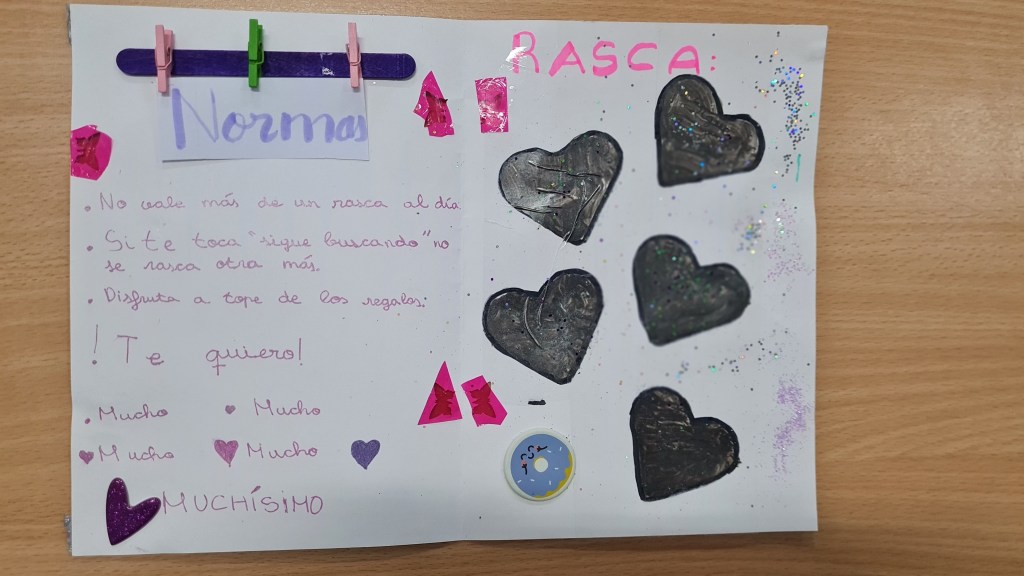 Normas
. No vale más de un rasca al día
. Si te toca "sigue buscando" no
se rasca otra más.
. Disfruta a tope de los regalos.
! Te quiero!
. Mucho
Mucho
Mucho
Mucho
MUCHÍSIMO
RASCA: